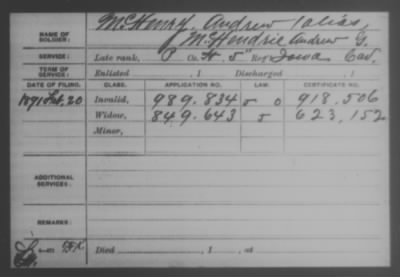 McHenry, Andrew (alias,
NAME OF SOLDIER:
McHendrie Andrew G.
SERVICE: Late rank, P Co. H. 5" Reg't Iowa Cav.
TERM OF SERVICE: Enlisted , 1 Discharged , 1
DATE OF FILING. CLASS. APPLICATION NO. LAW. CERTIFICATE NO.
1891 Feb. 20 Invalid, 989.834 0 918.506
Widow, 849.643 623,152
Minor,
ADDITIONAL SERVICES:
REMARKS:
Died , 1 , at